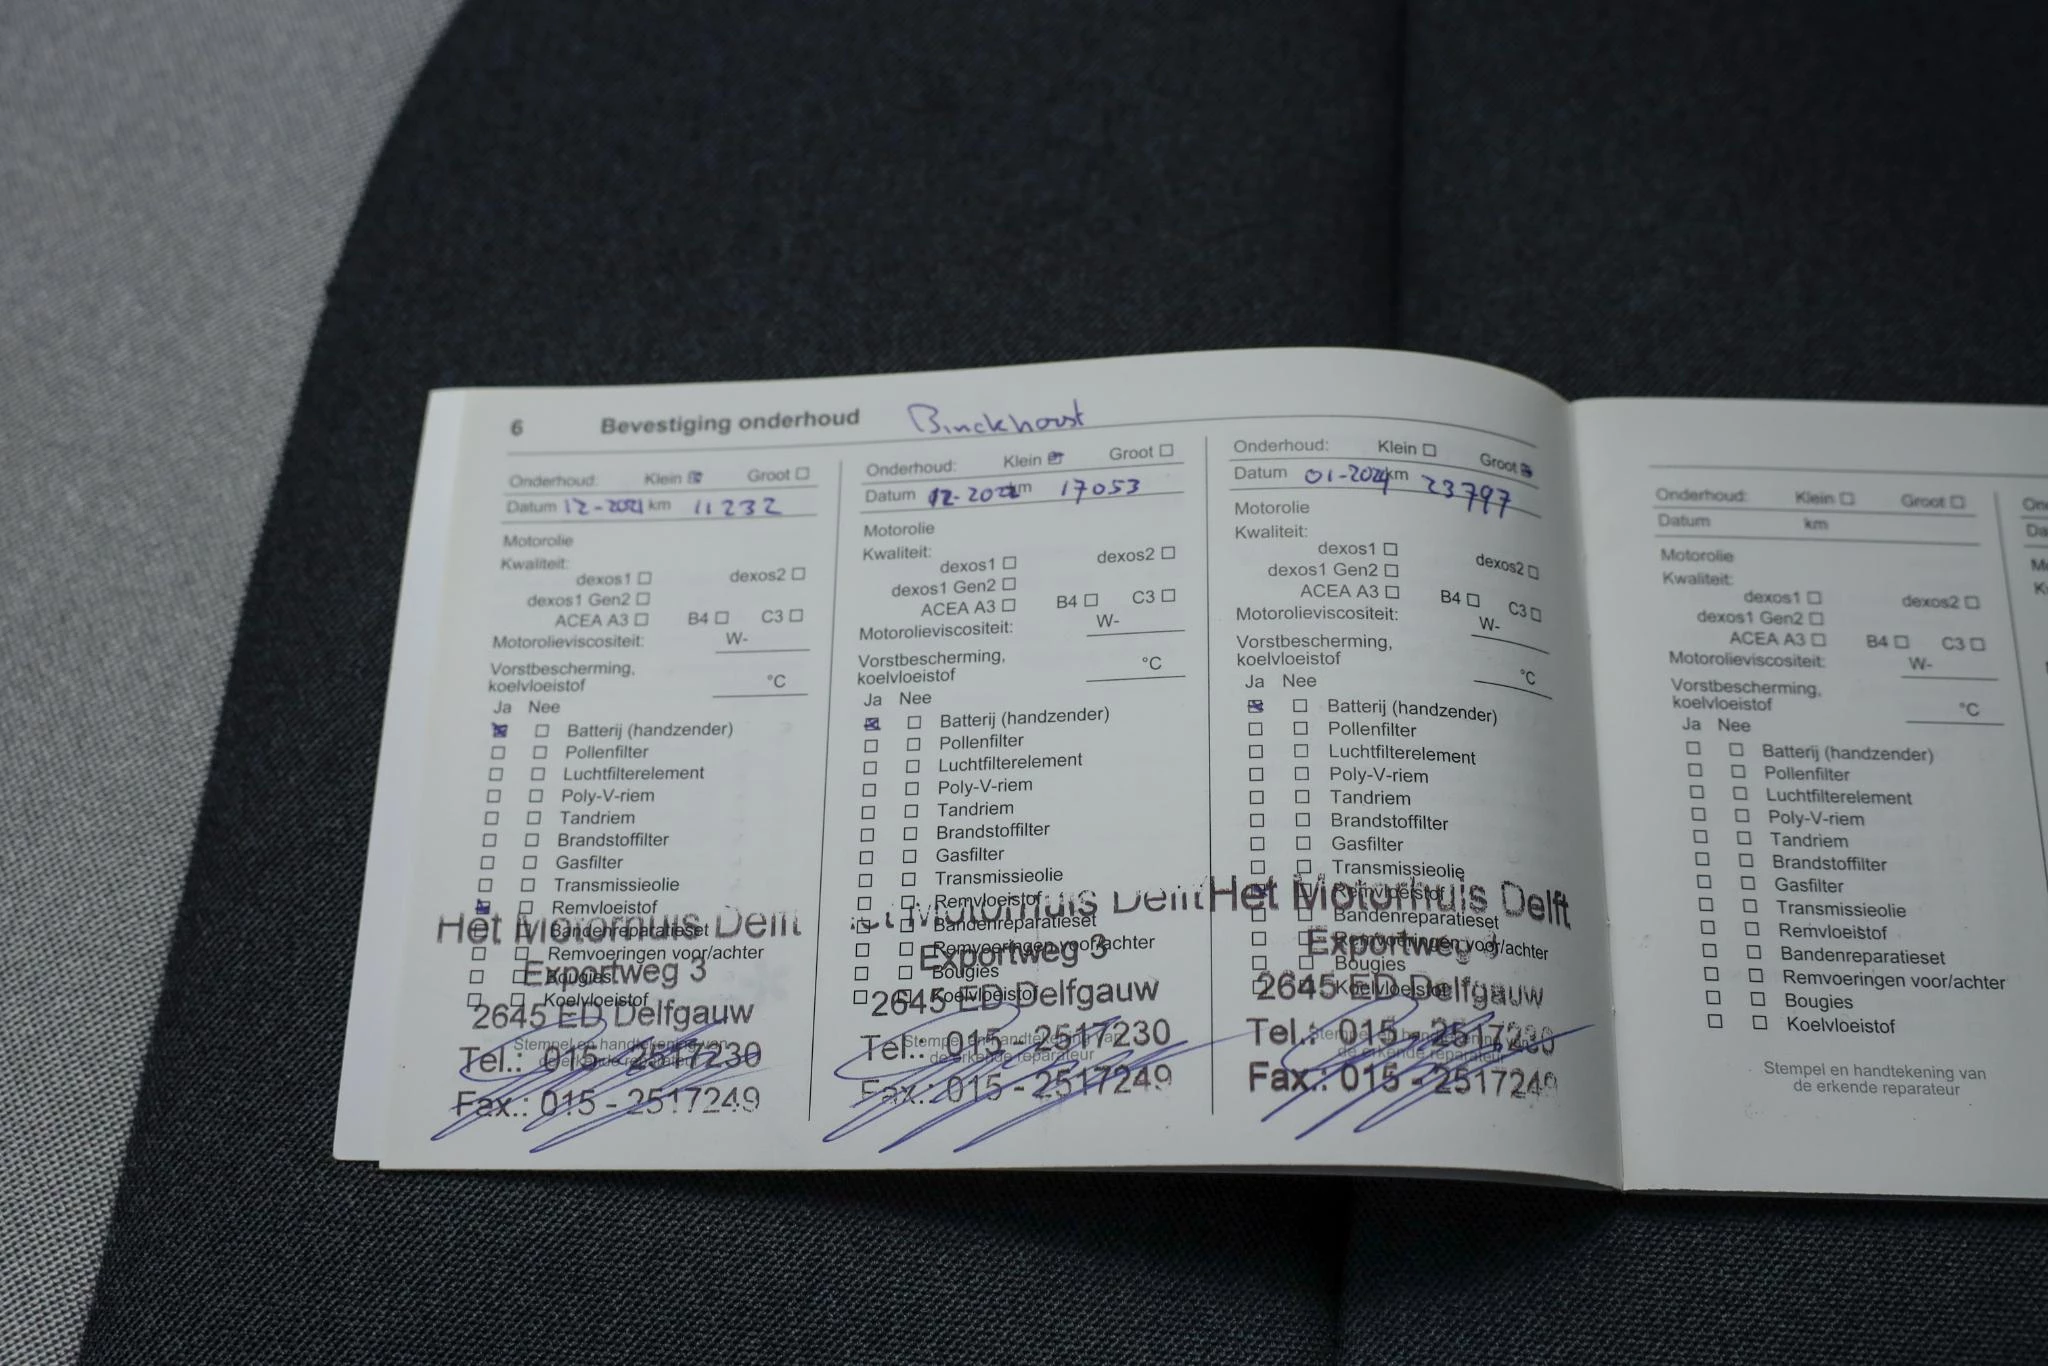 6 Bevestiging onderhoud Binckhorst
Onderhoud: Klein Groot
Datum 12-2021 km 11232
Motorolie
Kwaliteit:
dexos1 dexos2
dexos1 Gen2
ACEA A3 B4 C3
Motorolieviscositeit: W-
Vorstbescherming,
koelvloeistof °C
Ja Nee
Batterij (handzender)
Pollenfilter
Luchtfilterelement
Poly-V-riem
Tandriem
Brandstoffilter
Gasfilter
Transmissieolie
Remvloeistof
Bandenreparatieset
Remvoeringen voor/achter
Bougies
Koelvloeistof
Stempel en handtekening van
de erkende reparateur
Het Motorhuis Delft
Exportweg 3
2645 ED Delfgauw
Tel.: 015 - 2517230
Fax.: 015 - 2517249
Onderhoud: Klein Groot
Datum 12-2022 km 17053
Motorolie
Kwaliteit:
dexos1 dexos2
dexos1 Gen2
ACEA A3 B4 C3
Motorolieviscositeit: W-
Vorstbescherming,
koelvloeistof °C
Ja Nee
Batterij (handzender)
Pollenfilter
Luchtfilterelement
Poly-V-riem
Tandriem
Brandstoffilter
Gasfilter
Transmissieolie
Remvloeistof
Bandenreparatieset
Remvoeringen voor/achter
Bougies
Koelvloeistof
Stempel en handtekening van
de erkende reparateur
Het Motorhuis Delft
Exportweg 3
2645 ED Delfgauw
Tel.: 015 - 2517230
Fax.: 015 - 2517249
Onderhoud: Klein Groot
Datum 01-2024 km 23797
Motorolie
Kwaliteit:
dexos1 dexos2
dexos1 Gen2
ACEA A3 B4 C3
Motorolieviscositeit: W-
Vorstbescherming,
koelvloeistof °C
Ja Nee
Batterij (handzender)
Pollenfilter
Luchtfilterelement
Poly-V-riem
Tandriem
Brandstoffilter
Gasfilter
Transmissieolie
Remvloeistof
Bandenreparatieset
Remvoeringen voor/achter
Bougies
Koelvloeistof
Stempel en handtekening van
de erkende reparateur
Het Motorhuis Delft
Exportweg 3
2645 ED Delfgauw
Tel.: 015 - 2517230
Fax.: 015 - 2517249
Onderhoud: Klein Groot
Datum km
Motorolie
Kwaliteit:
dexos1 dexos2
dexos1 Gen2
ACEA A3 B4 C3
Motorolieviscositeit: W-
Vorstbescherming,
koelvloeistof °C
Ja Nee
Batterij (handzender)
Pollenfilter
Luchtfilterelement
Poly-V-riem
Tandriem
Brandstoffilter
Gasfilter
Transmissieolie
Remvloeistof
Bandenreparatieset
Remvoeringen voor/achter
Bougies
Koelvloeistof
Stempel en handtekening van
de erkende reparateur